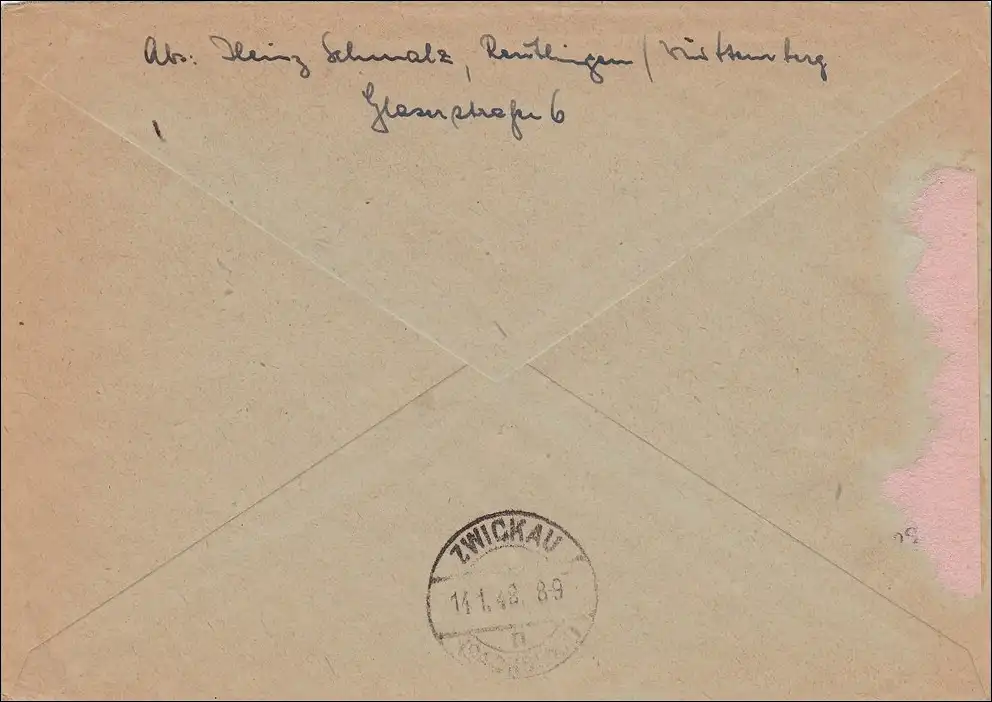 Abs: Heinz Schmalz, Reutlingen / Württemberg
Glaserstraße 6
ZWICKAU
14.1.48. 8-9
n
(SACHSEN)